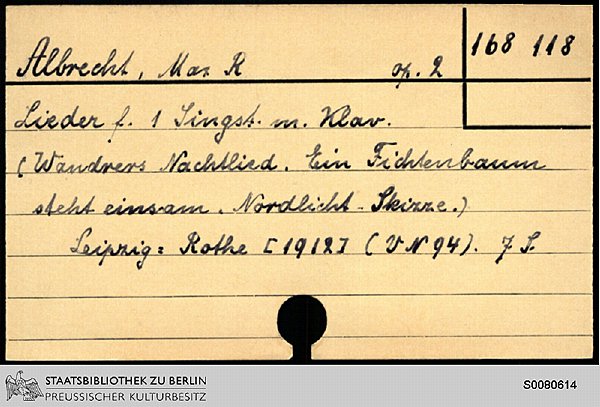 Albrecht, Max R op. 2 168 118
Lieder f. 1 Singst. m. Klav.
(Wandrers Nachtlied. Ein Fichtenbaum
steht einsam. Nordlicht-Skizze.)
Leipzig: Rothe [1912] (VN 94). 7 S.
STAATSBIBLIOTHEK ZU BERLIN
PREUSSISCHER KULTURBESITZ
S0080614